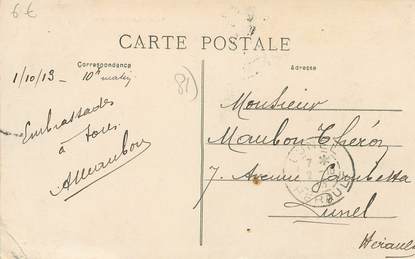 6€
CARTE POSTALE
Correspondance
Adresse
1/10/13 - 10h matin
81
Embrassades
à tous
AMaubon
Monsieur
Maubon-Théron
7, Avenue Gambetta
Lunel
Hérault
HERAULT